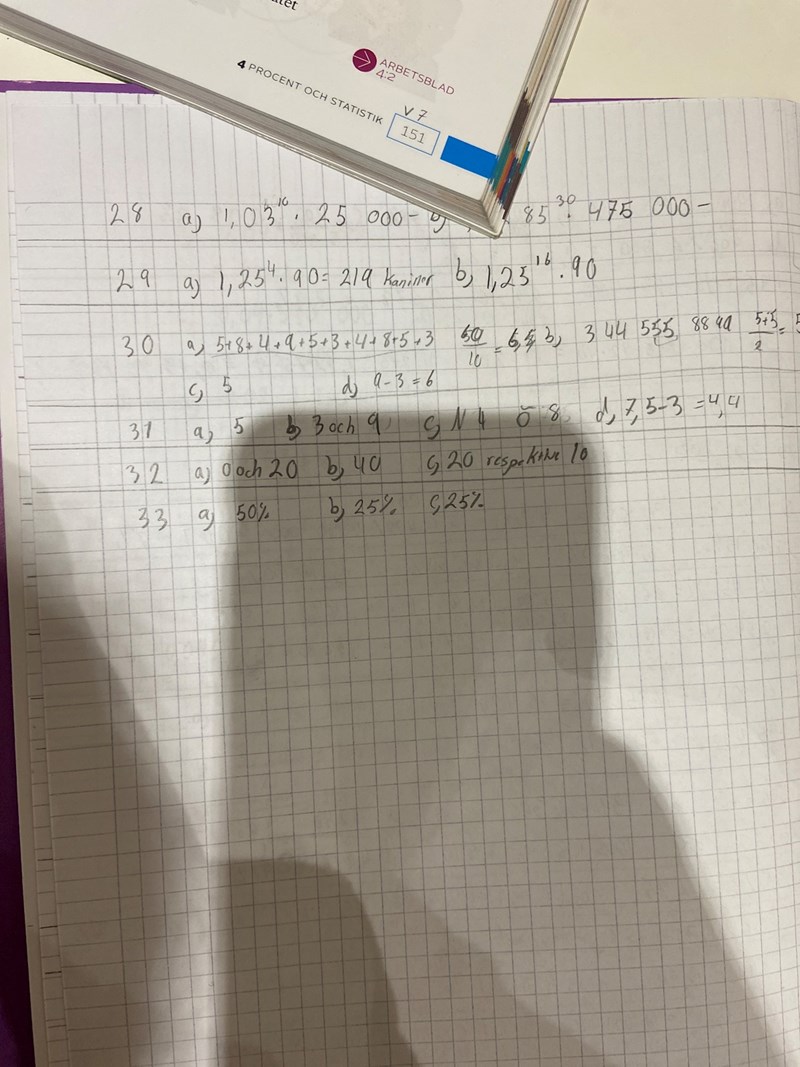 ARBETSBLAD
4:2
4 PROCENT OCH STATISTIK
V 7
151
28 a) 1,03¹⁰ · 25 000- b) 85³⁰ · 475 000-
29 a) 1,25⁴ · 90 = 219 kaniner b) 1,25¹⁶ · 90
30 a) 5+8+4+9+5+3+4+8+5+3 10 = b) 3 44 555 88 9 5+5/2 =
c) 5 d) 9-3=6
31 a) 5 b) 3 och 9 c) 4 8 d) 7,5-3=4,4
32 a) 0 och 20 b) 40 c) 20 respektive 10
33 a) 50% b) 25% c) 25%